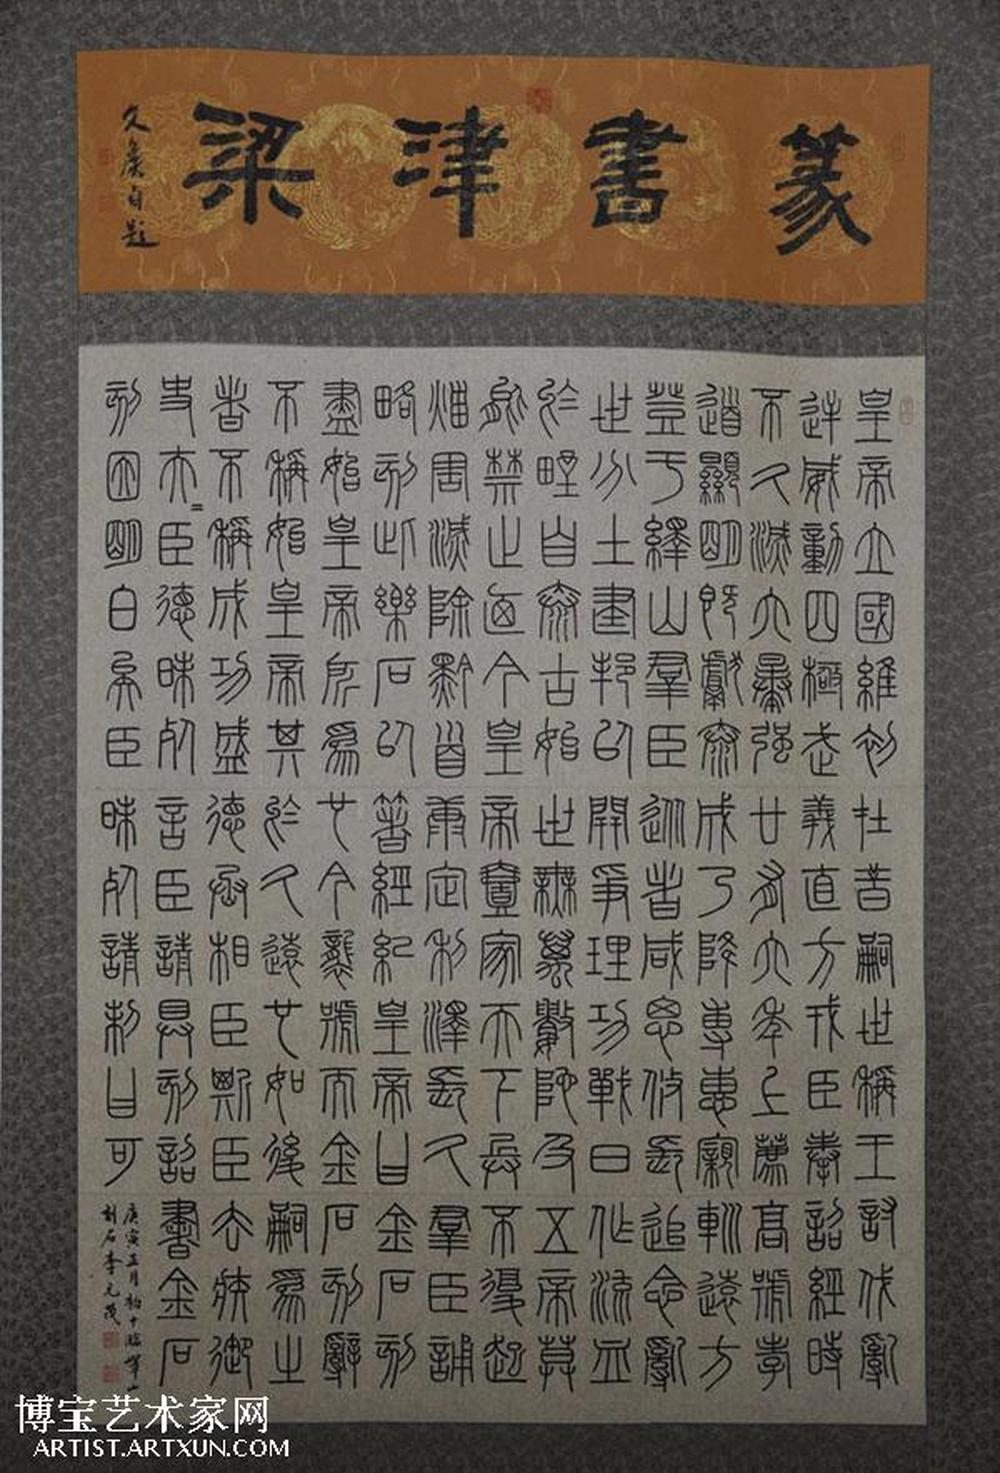 篆書津梁
自題
皇帝立國維初在昔嗣世稱王討伐亂
逆威動四極武義直方戎臣奉詔經時
不久滅六暴強廿有六年上薦高號孝
道顯明既獻泰成乃降專惠親巡遠方
登于繹山羣臣從者咸思攸長追念亂
世分土建邦以開爭理功戰日作流血
於野自泰古始世無萬數陀及五帝莫
能禁止迺今皇帝壹家天下兵不復起
烖害滅除黔首康定利澤長久羣臣誦
略刻此樂石以著經紀皇帝曰金石刻
盡始皇帝所為也今襲號而金石刻辭
不稱始皇帝其於久遠也如後嗣為之
者不稱成功盛德丞相臣斯臣去疾御
史夫=臣德昧死言臣請具刻詔書金石
刻因明白矣臣昧死請制曰可
庚寅正月初十臨嶧山
刻石李元茂
博宝艺术家网
ARTIST.ARTXUN.COM